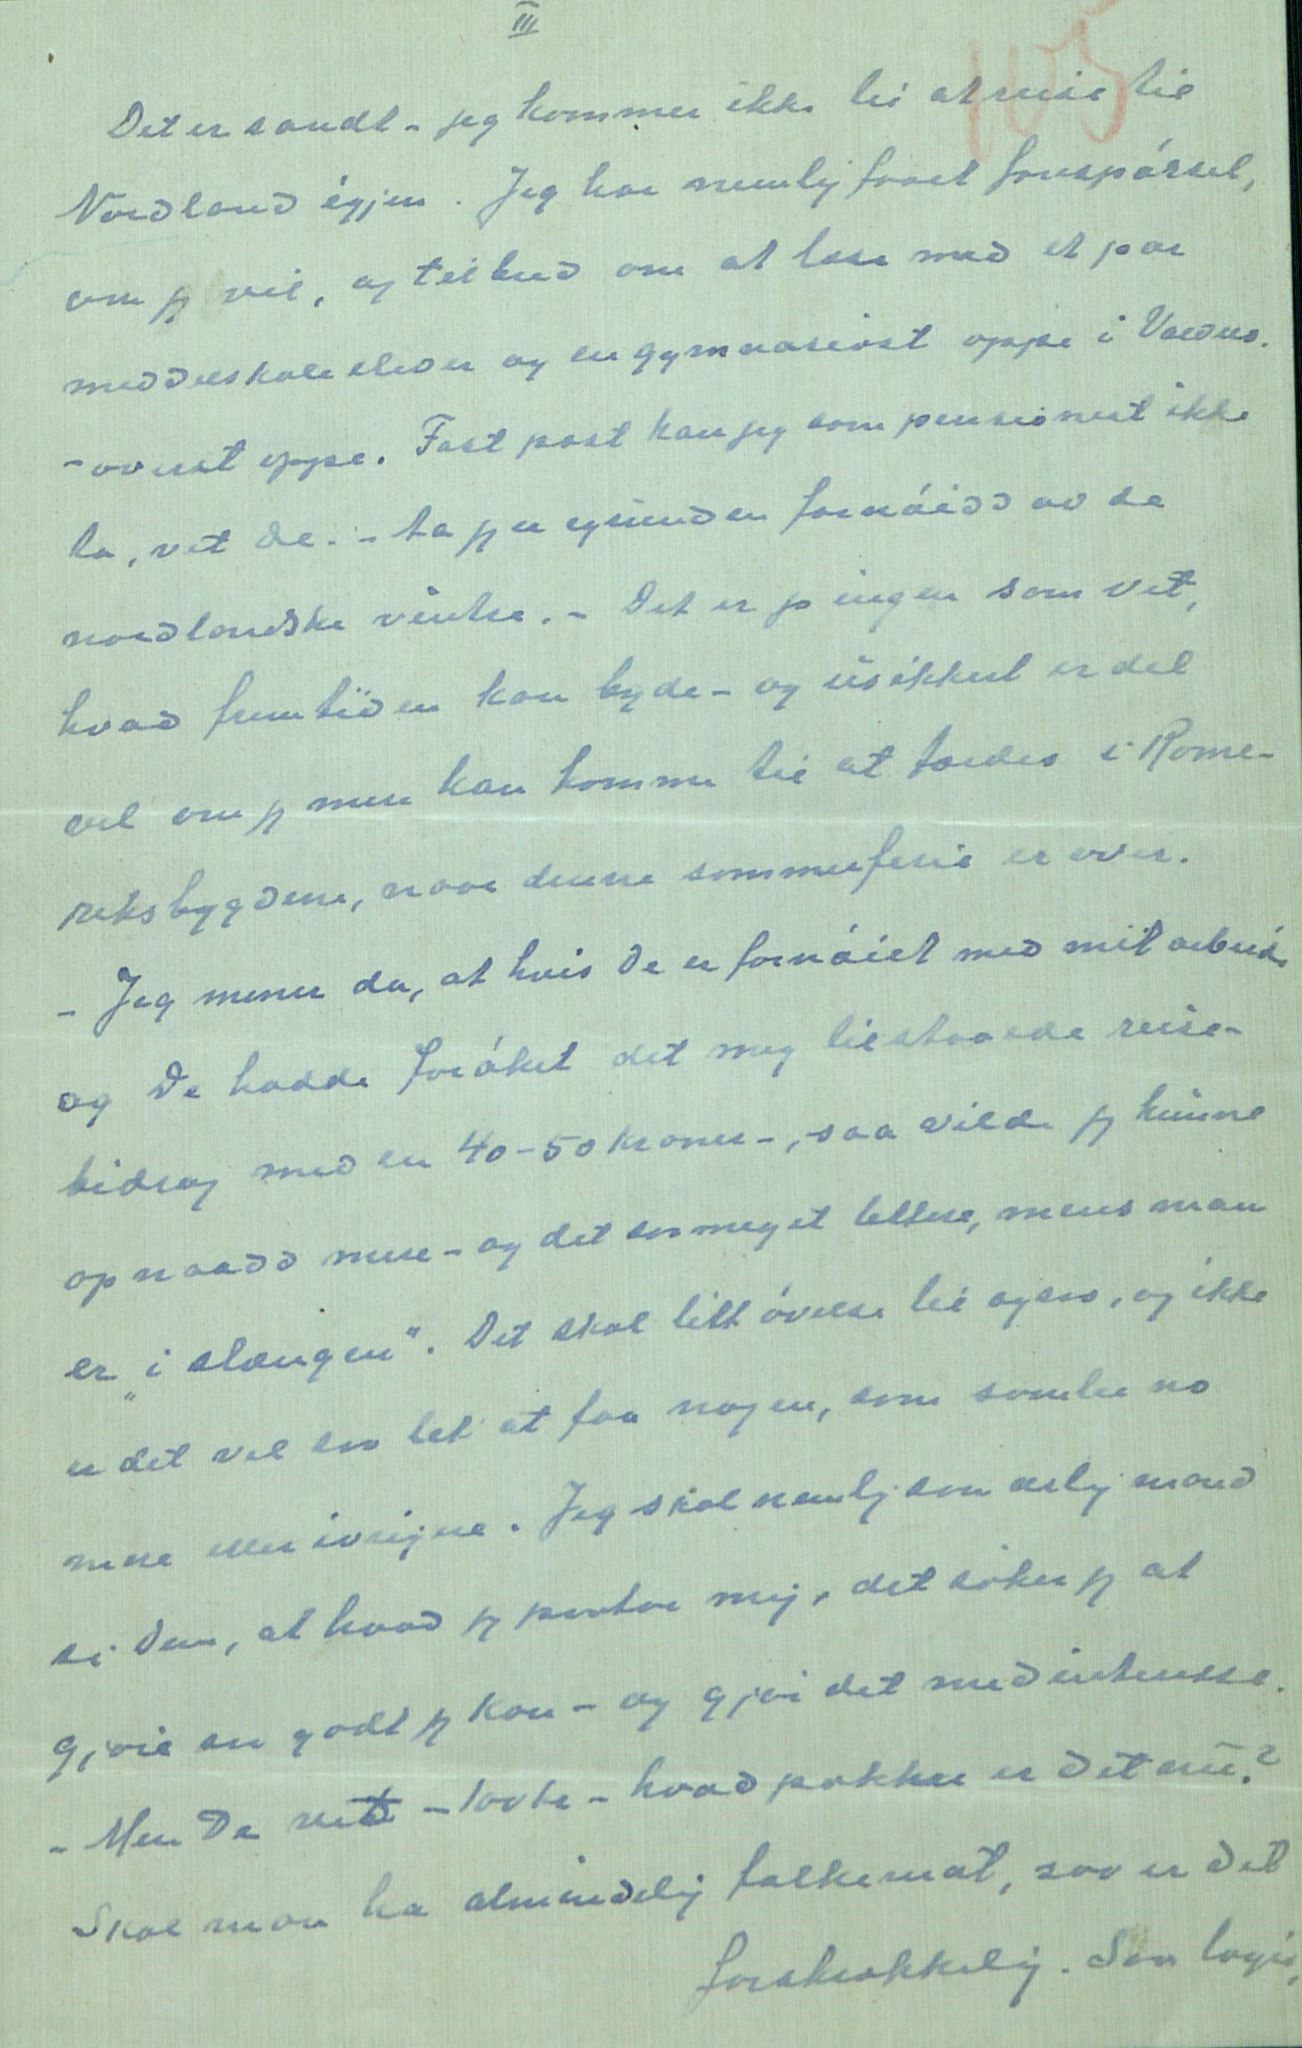 III
103
Det er sandt - jeg kommer ikke til at reise til
Nordland igjen. Jeg har nemlig faaet forespørsel,
om jeg vil, og tilbud om at læse med et par
middelskoleelever og en gymnasiast oppe i
- øverst oppe. Fast post kan jeg som pensionist ikke
ta, vet De. - Ja jeg er egentlig fornøid av de
nordlandske vintre. - Det er jo ingen som vet,
hvad fremtiden kan byde - og usikkert er det
vel om jeg mere kan komme til at færdes i Rome-
riksbygdene, naar denne sommerferie er over.
- Jeg mener da, at hvis De er fornøiet med mit arbeide
og De hadde forøket det mig tilstaaede reise-
bidrag med en 40-50 kroner -, saa vilde jeg kunne
opnaadd mere - og det saa meget lettere, mens man
er „i slængen". Det skal litt øvelse til ogsaa, og ikke
er det vel saa let at faa nogen, som samler no
mere eller ivrigere. Jeg skal nemlig som ærlig mand
si Dem, at hvad jeg paatar mig, det søker jeg at
gjøre saa godt jeg kan - og gjør det med interesse.
- Men De vet - - hvad pokker er det nu?
Skal man ha almindelig folkemat, saa er det
forskrækkelig. Saa logis,